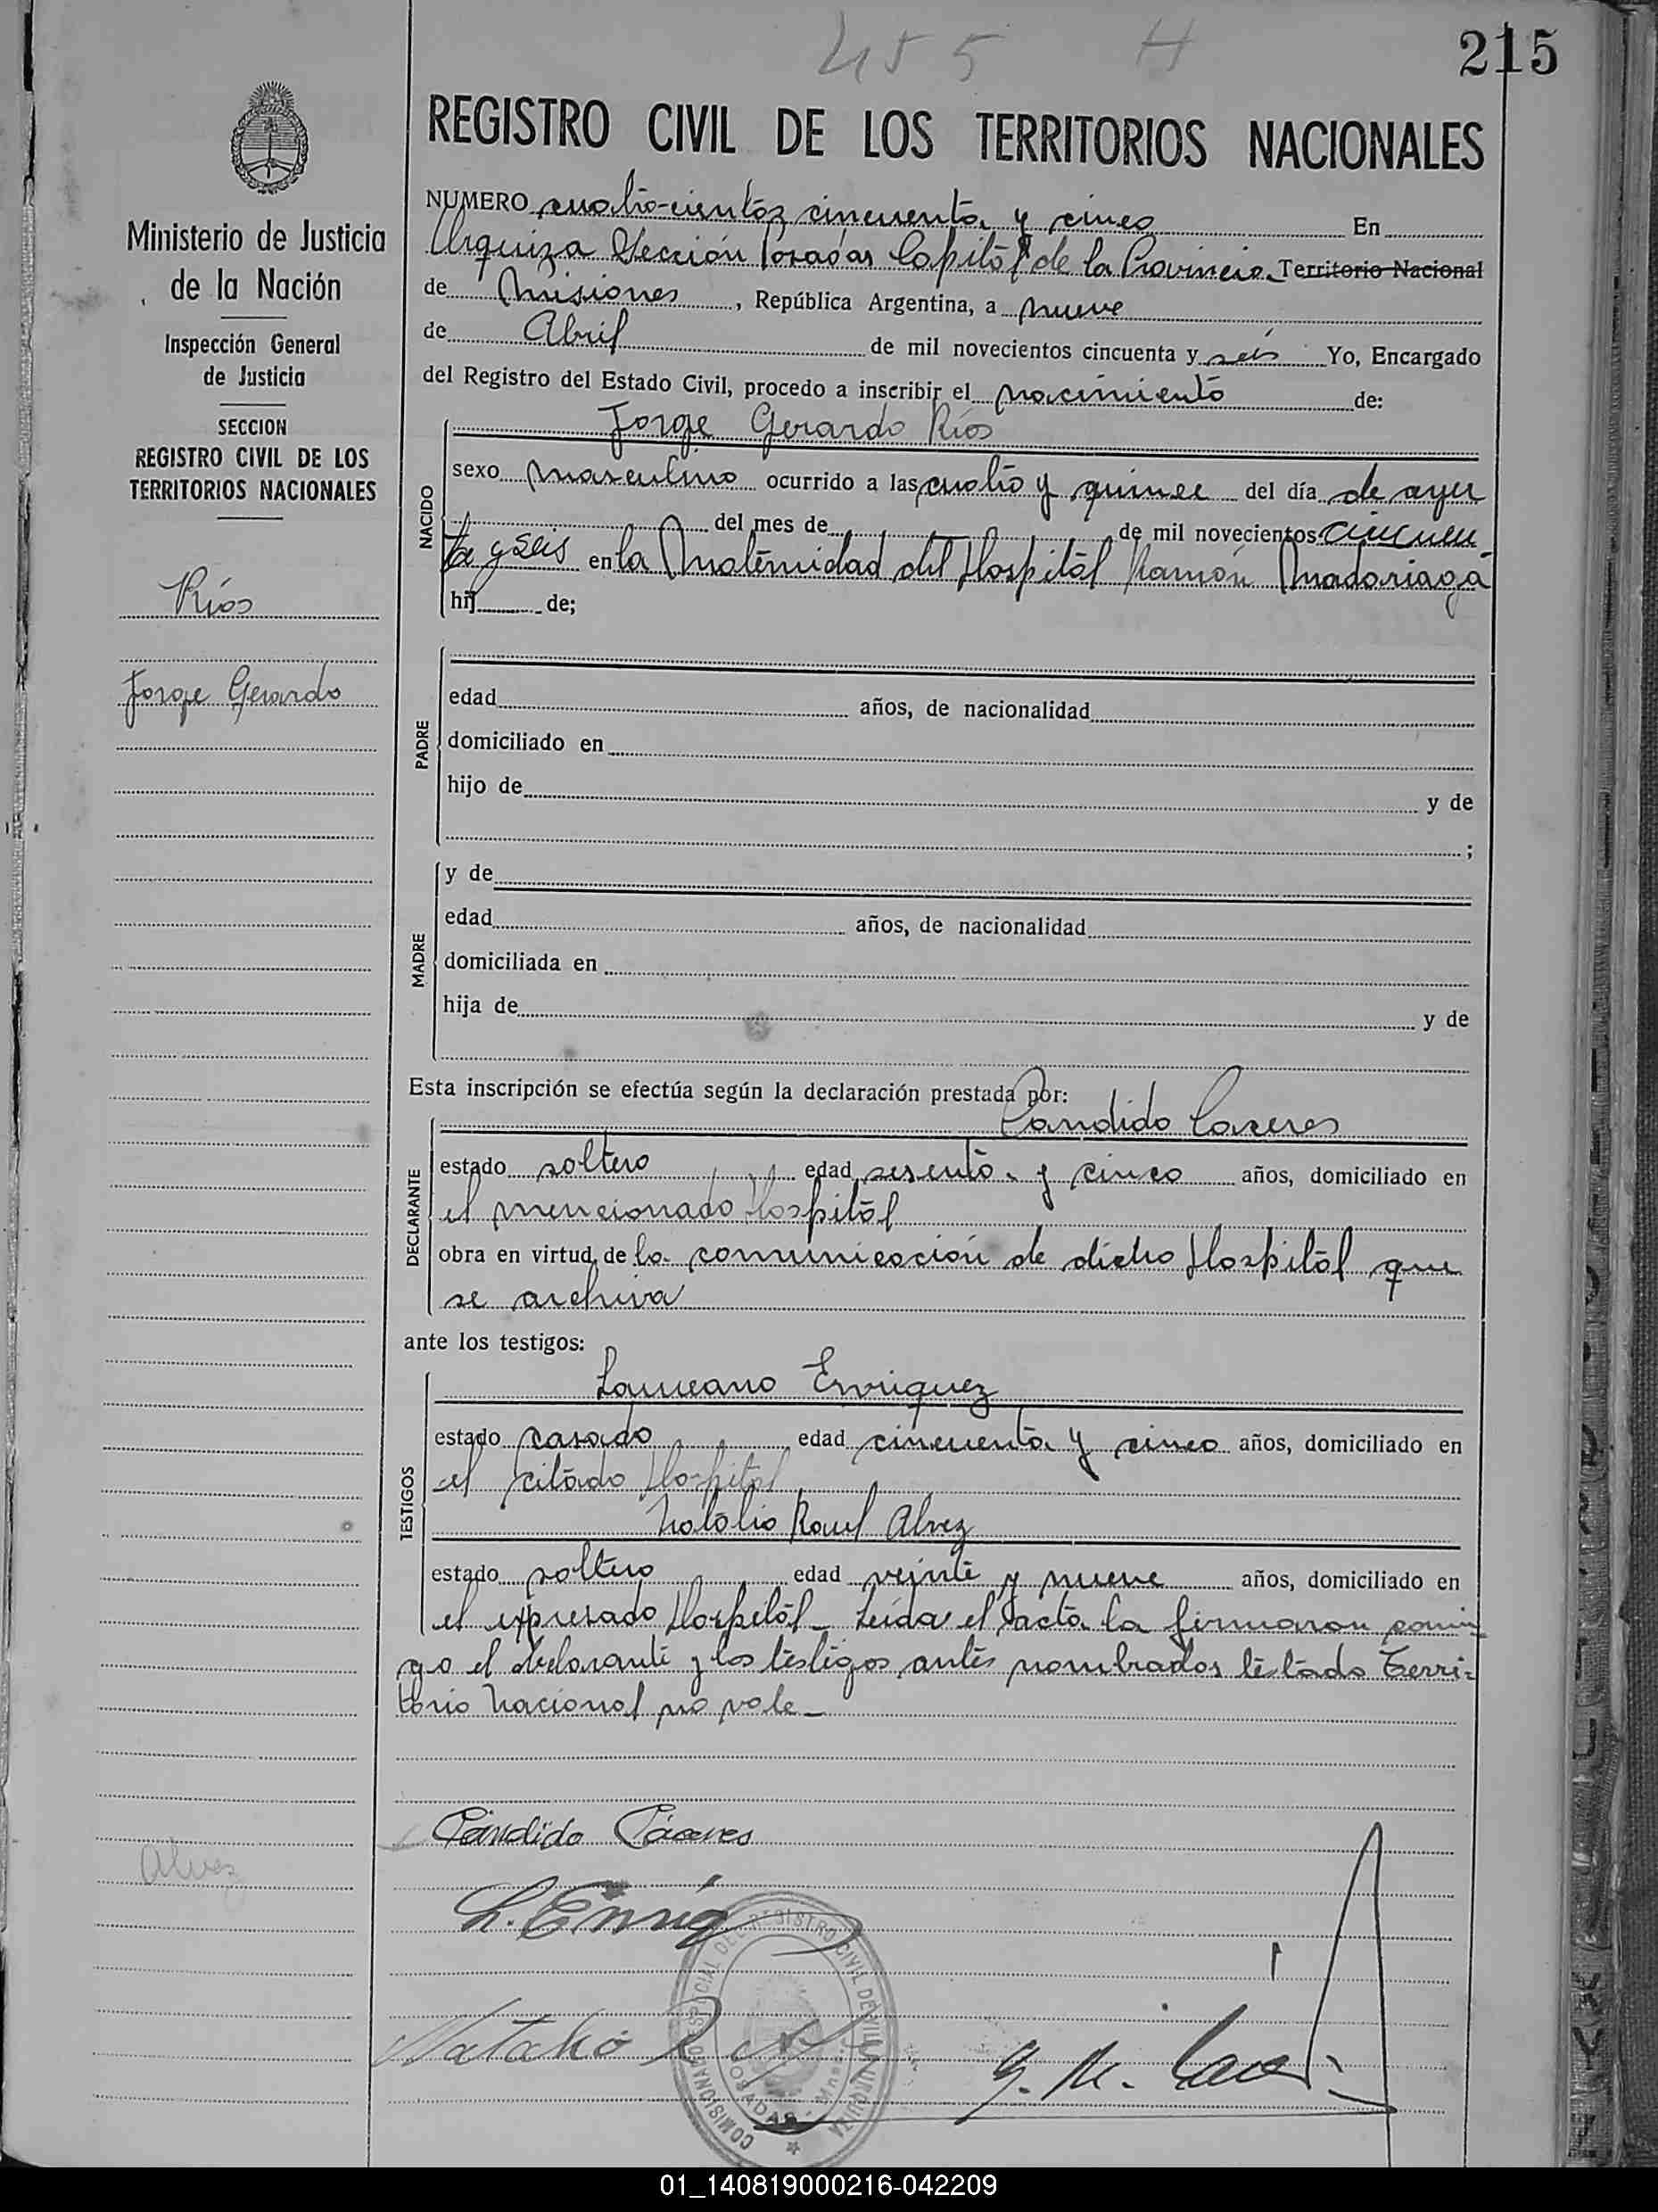 455 H
215
REGISTRO CIVIL DE LOS TERRITORIOS NACIONALES
Ministerio de Justicia
de la Nación
Inspección General
de Justicia
SECCION
REGISTRO CIVIL DE LOS
TERRITORIOS NACIONALES
Ríos
Jorge Gerardo
Alvez
NUMERO cuatro-cientos cincuenta y cinco En
Urquiza Sección Posadas Capital de la Provincia Territorio Nacional
de Misiones, República Argentina, a nueve
de Abril de mil novecientos cincuenta y seis Yo, Encargado
del Registro del Estado Civil, procedo a inscribir el nacimiento de:
NACIDO
Jorge Gerardo Ríos
sexo masculino ocurrido a las cuatro y quince del día de ayer
del mes de de mil novecientos cincuen
ta y seis en la Maternidad del Hospital Ramón Madariaga
hij de;
PADRE
edad años, de nacionalidad
domiciliado en
hijo de y de
;
MADRE
y de
edad años, de nacionalidad
domiciliada en
hija de y de
Esta inscripción se efectúa según la declaración prestada por:
DECLARANTE
Candido Caceres
estado soltero edad sesenta y cinco años, domiciliado en
el mencionado Hospital
obra en virtud de la comunicación de dicho Hospital que
se archiva
ante los testigos:
TESTIGOS
Laureano Enriquez
estado casado edad cincuenta y cinco años, domiciliado en
el citado Hospital
Natalio Raul Alvez
estado soltero edad veinte y nueve años, domiciliado en
el expresado Hospital_ Leída el acta la firmaron conmi-
go el declarante y los testigos antes nombrados testado Terri-
torio Nacional no vale_
Cándido Cáceres
L. Enriq
Natalio R
COMISIONADO DEL REGISTRO CIVIL DE VILLA URQUIZA
POSADAS - Mnes.
01_140819000216-042209